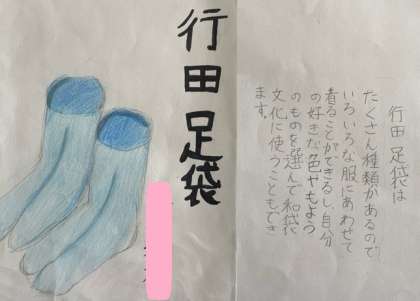 行田足袋
行田足袋は
たくさん種類があるので
いろいろな服にあわせて
着ることができるし、自分
の好きな色やもよう
のものを選んで和袋
文化に使うこともでき
ます。